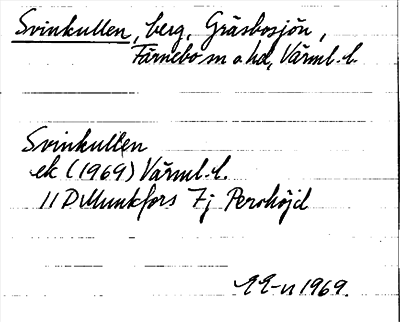 Svinkullen, berg, Gräsbosjön,
Färnebo sn o hd, Värml. l.
Svinkullen
ek (1969) Värml. l.
11 D Munkfors 7j Perohöjd
1969.